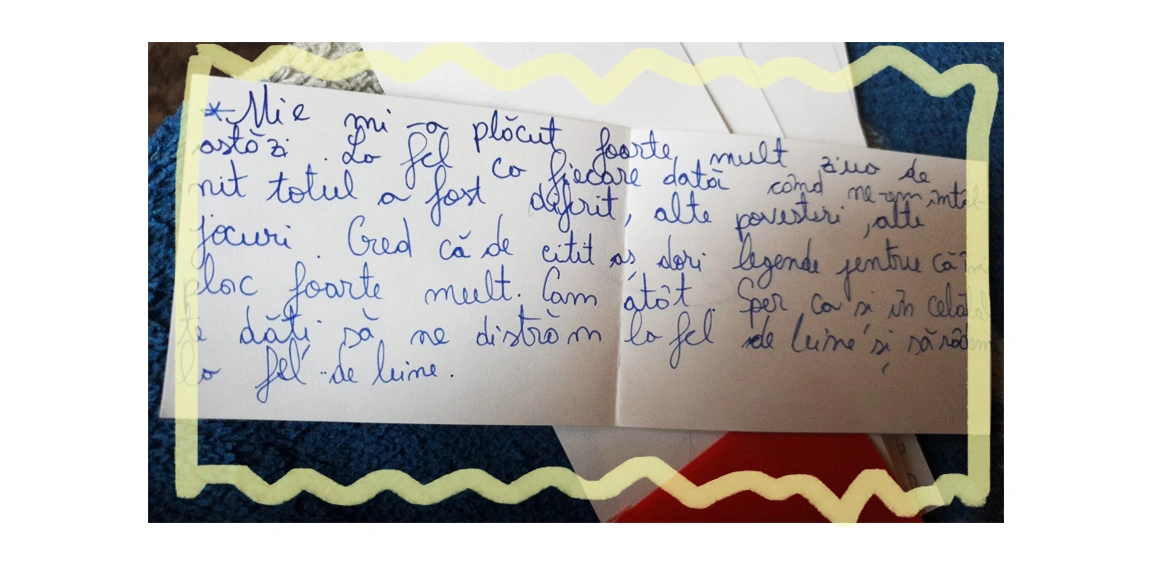 *Mie mi-a plăcut foarte mult ziua de
astăzi. La fel ca fiecare dată când ne-am întâl-
nit totul a fost diferit, alte povestiri, alte
jocuri. Cred că de citit aș dori legende pentru că îmi
plac foarte mult. Cam atât. Sper ca și în celălal
te dăți să ne distrăm la fel de bine și să râdem
la fel de bine.